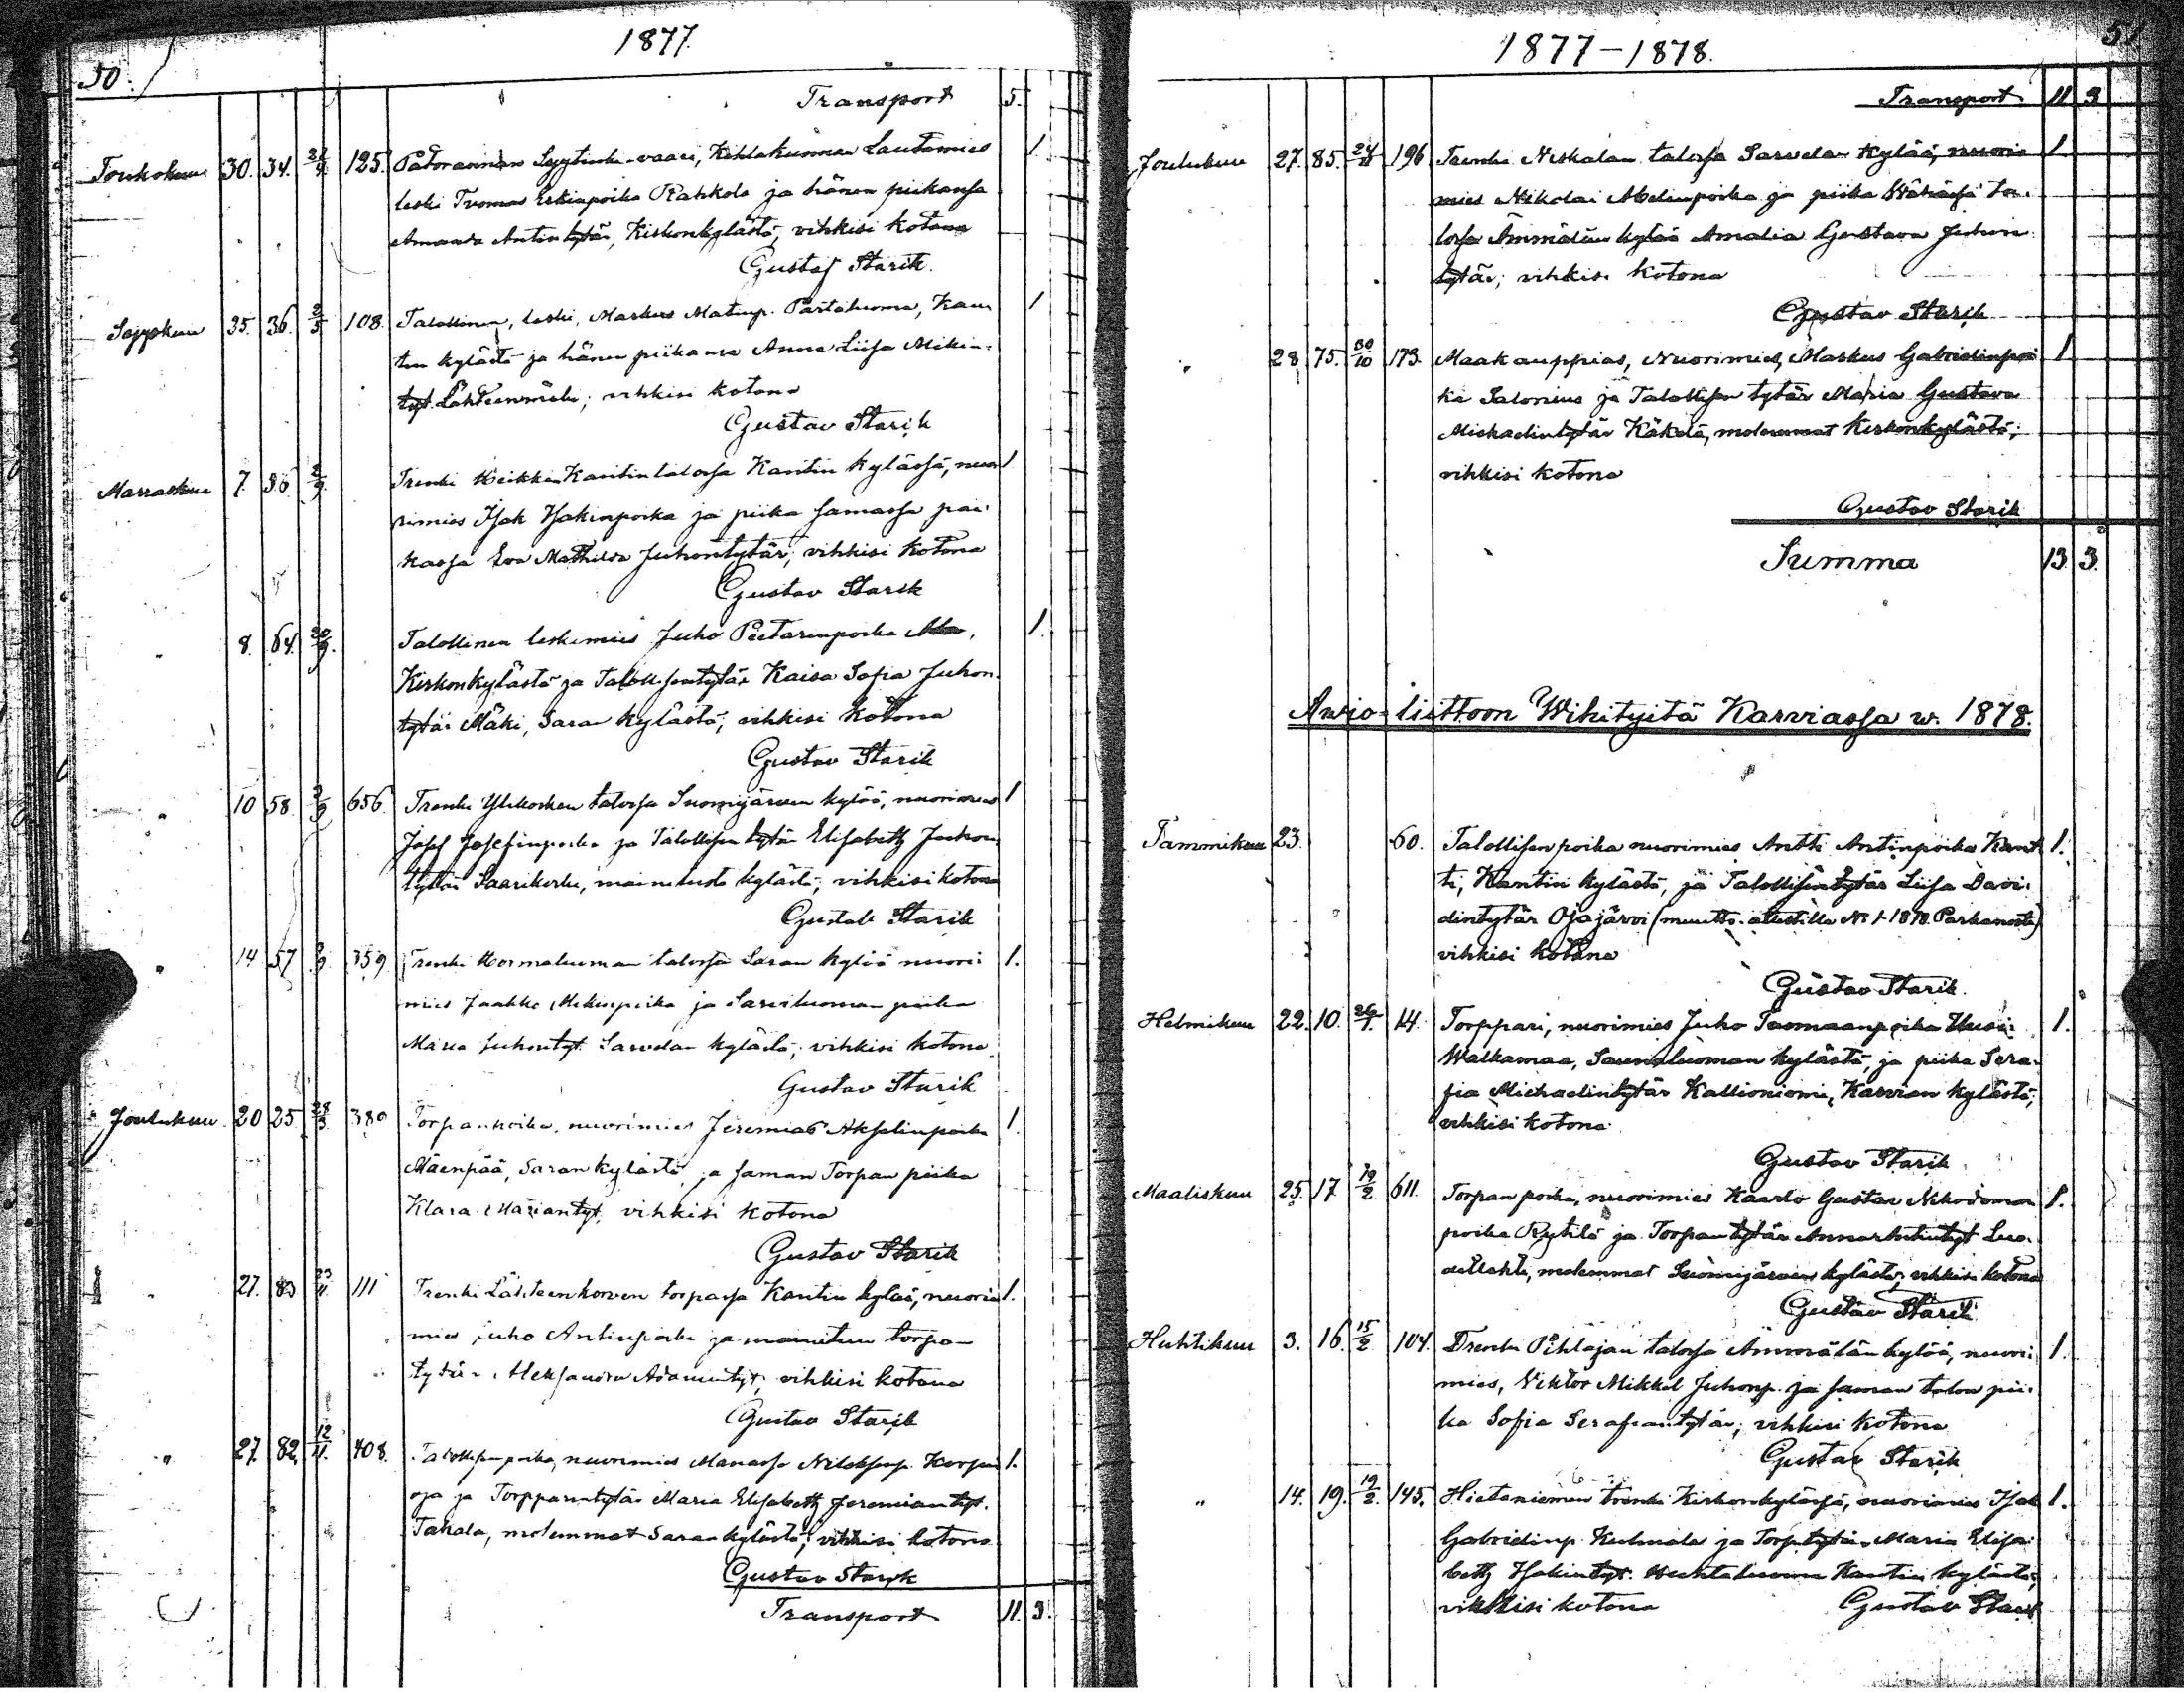 1877.
50.
Transport 5.
Toukokuu 30. 34. 125. Lautamies 1
leski Tuomas Eskinpoika Rahkola ja hänen piikansa
Amanda Antintytär, Kirkonkylästä, vihkisi kotona
Gustaf Starik.
Syyskuu 25. 36. 2/5 108. Talollinen, leski, Markus Matinp. Partaluoma, Kan 1
tin kylästä ja hänen piikansa Anna Liisa Mikin-
tyt. Lähteenmäki; vihkisi kotona
Gustav Starik
Marraskuu 7. 36 2/9 Trenki Heikkin Kantin talossa Kantin kylässä, nuo 1
rimies Isak Isakinpoika ja piika samassa pai-
kassa Eva Mathilda Juhontytär; vihkisi kotona
Gustav Starik
" 8. 64. 20/9. Talollinen leskimies Juho Pietarinpoika 1.
Kirkonkylästä ja Talollisentytär Kaisa Sofia Juhon-
tytär Mäki, Saran kylästä; vihkisi kotona
Gustav Starik
" 10 58. 656. Trenki Ylikosken talossa Suomijärven kylää, nuorimies 1
Josef Josefinpoika ja Talollisen tytär Elisabeth Juhon-
tytär Saarikoski, mainitusta kylästä; vihkisi kotona
Gustav Starik
" 14 57 359 Trenki talossa Saran kylää nuori- 1.
mies Jaakko ja Sarviluoman piika
Maria Juhontyt. Sarvelan kylästä; vihkisi kotona
Gustav Starik
Joulukuu 20 25 380 Torpanpoika, nuorimies Jeremias Akselinpoika 1.
Mäenpää, Saran kylästä, ja saman Torpan piika
Klara Mariantyt. vihkisi kotona
Gustav Starik
" 27. 83 23/11 111 Trenki Lähteenkorven torpassa Kantin kylää, nuori 1.
mies Juho Antinpoika ja mainitun torpan
tytär Aleksandra Adamintyt; vihkisi kotona
Gustav Starik
" 27. 82. 12/11. 408. Talollisenpoika, nuorimies Manasse 1.
oja ja Torpparintytär Maria Elisabeth Jeremiantyt.
Takala, molemmat Saran kylästä; vihkisi kotona
Gustav Starik
Transport 11. 3.
1877–1878.
51
Transport 11 3
Joulukuu 27. 85. 24/11 196 Trenki Niskalan talossa Sarvelan kylää, nuori 1
mies Nikolai Abelinpoika ja piika ta-
lossa Ämmälän kylää Amalia Gustava Juhon
tytär; vihkisi kotona
Gustav Starik
" 28 75. 30/10 173. Maakauppias, Nuorimies, Markus Gabrielinpoi 1
ka Salonius ja Talollisen tytär Maria Gustava
Michaelintytär Käkelä, molemmat Kirkonkylästä;
vihkisi kotona
Gustav Starik
Summa 13. 3.
Awio-liittoon Wihityitä Karviassa w. 1878.
Tammikuu 23. 60. Talollisen poika nuorimies Antti Antinpoika Kant 1.
ti, Kantin kylästä, ja Talollisentytär Liisa Davi-
dintytär Ojajärvi (muutto-atestilla No 1 1878 Parkanosta)
vihkisi kotona
Gustav Starik.
Helmikuu 22. 10. 26/1. 14. Torppari, nuorimies Juho Tuomaanpoika Uusi- 1.
Walkamaa, Saunaluoman kylästä, ja piika Sera-
fia Michaelintytär Kallioniemi, Karvian kylästä;
vihkisi kotona
Gustav Starik
Maaliskuu 25. 17 19/2. 611. Torpan poika, nuorimies Kaarlo Gustav Nikodemon 1.
poika Rytilä ja Torpantytär Anna Antintyt Luo-
, molemmat Suomijärven kylästä; vihkisi kotona
Gustav Starik
Huhtikuu 3. 16. 15/2 104. Trenki Pihlajan talossa Ämmälän kylää, nuori- 1.
mies, Viktor Mikkel Juhonp. ja saman talon pii-
ka Sofia Serafiantytär; vihkisi kotona
Gustav Starik
" 14. 19. 19/2. 145. Hietaniemen trenki Kirkonkylässä, nuorimies Isak 1.
Gabrielinp. Kulmala ja Torp.tytär Maria Elisa-
beth Isakintyt. Kantin kylästä;
vihkisi kotona Gustav Starik